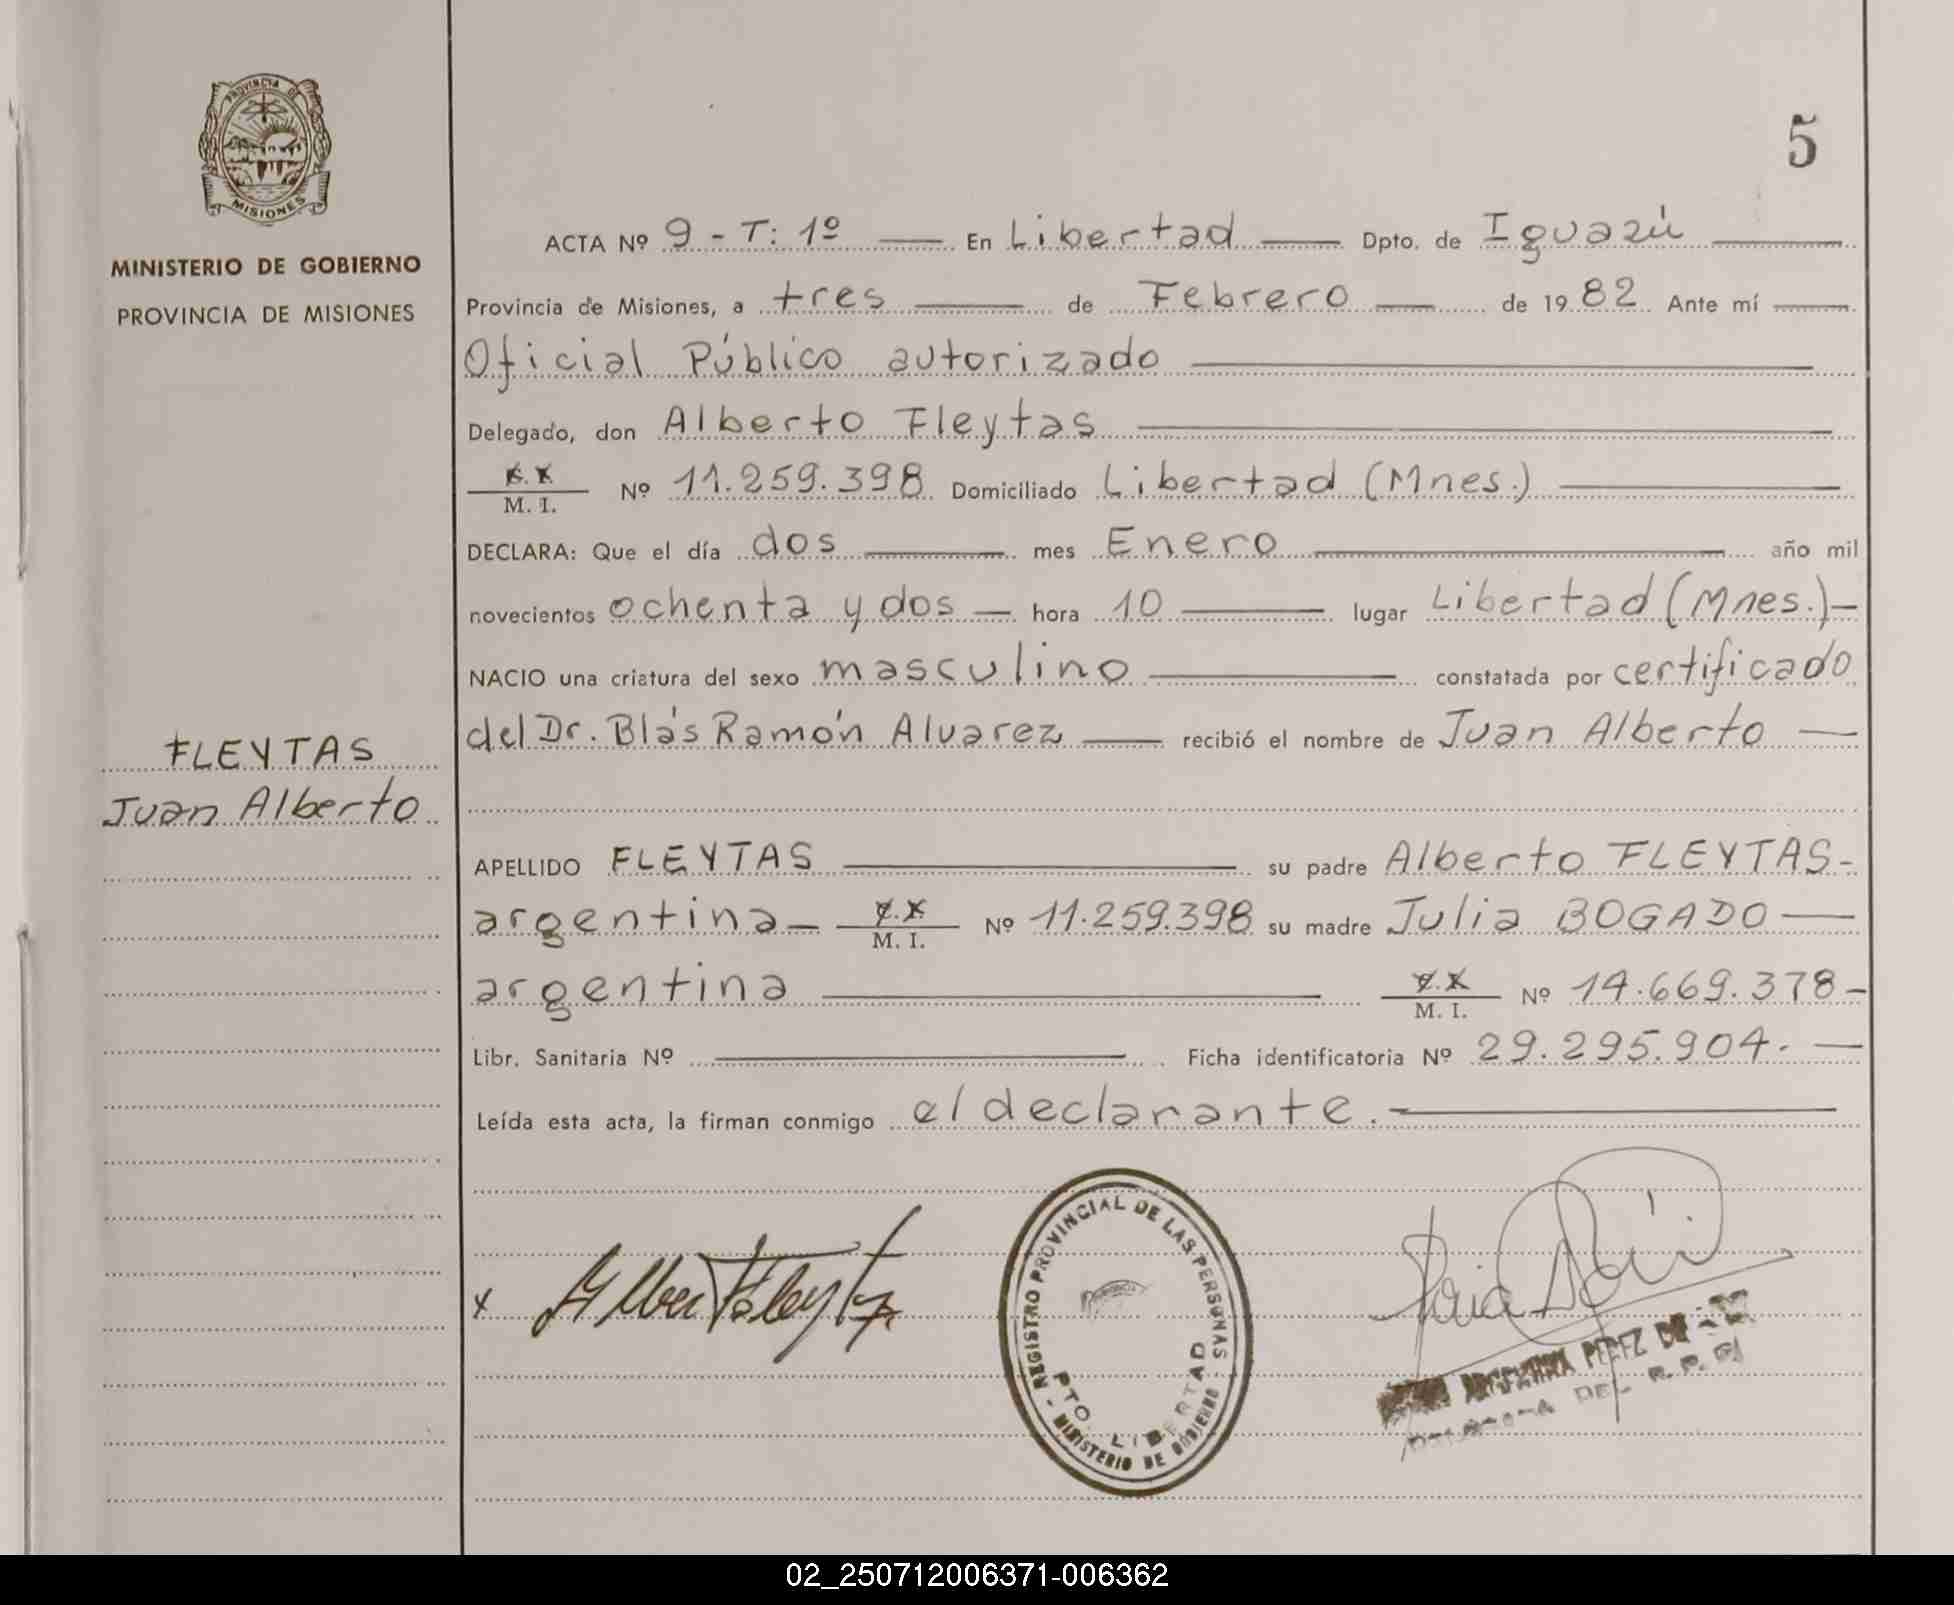 PROVINCIA DE
MISIONES
MINISTERIO DE GOBIERNO
PROVINCIA DE MISIONES
FLEYTAS
Juan Alberto
5
ACTA Nº 9 - T: 1º — En Libertad — Dpto. de Iguazú —
Provincia de Misiones, a tres — de Febrero — de 1982 Ante mí —
Oficial Público autorizado —
Delegado, don Alberto Fleytas —
M. I. Nº 11.259.398 Domiciliado Libertad (Mnes.) —
DECLARA: Que el día dos — mes Enero — año mil
novecientos ochenta y dos — hora 10 — lugar Libertad (Mnes.) —
NACIO una criatura del sexo masculino — constatada por certificado
del Dr. Blás Ramón Alvarez — recibió el nombre de Juan Alberto —
APELLIDO FLEYTAS — su padre Alberto FLEYTAS -
argentina — M. I. Nº 11.259.398 su madre Julia BOGADO —
argentina — M. I. Nº 14.669.378 -
Libr. Sanitaria Nº — Ficha identificatoria Nº 29.295.904. —
Leída esta acta, la firman conmigo el declarante. —
x Alberto Fleytas
REGISTRO PROVINCIAL DE LAS PERSONAS
- MINISTERIO DE GOBIERNO -
PTO. LIBERTAD
PEREZ DE
R. P.
02_250712006371-006362